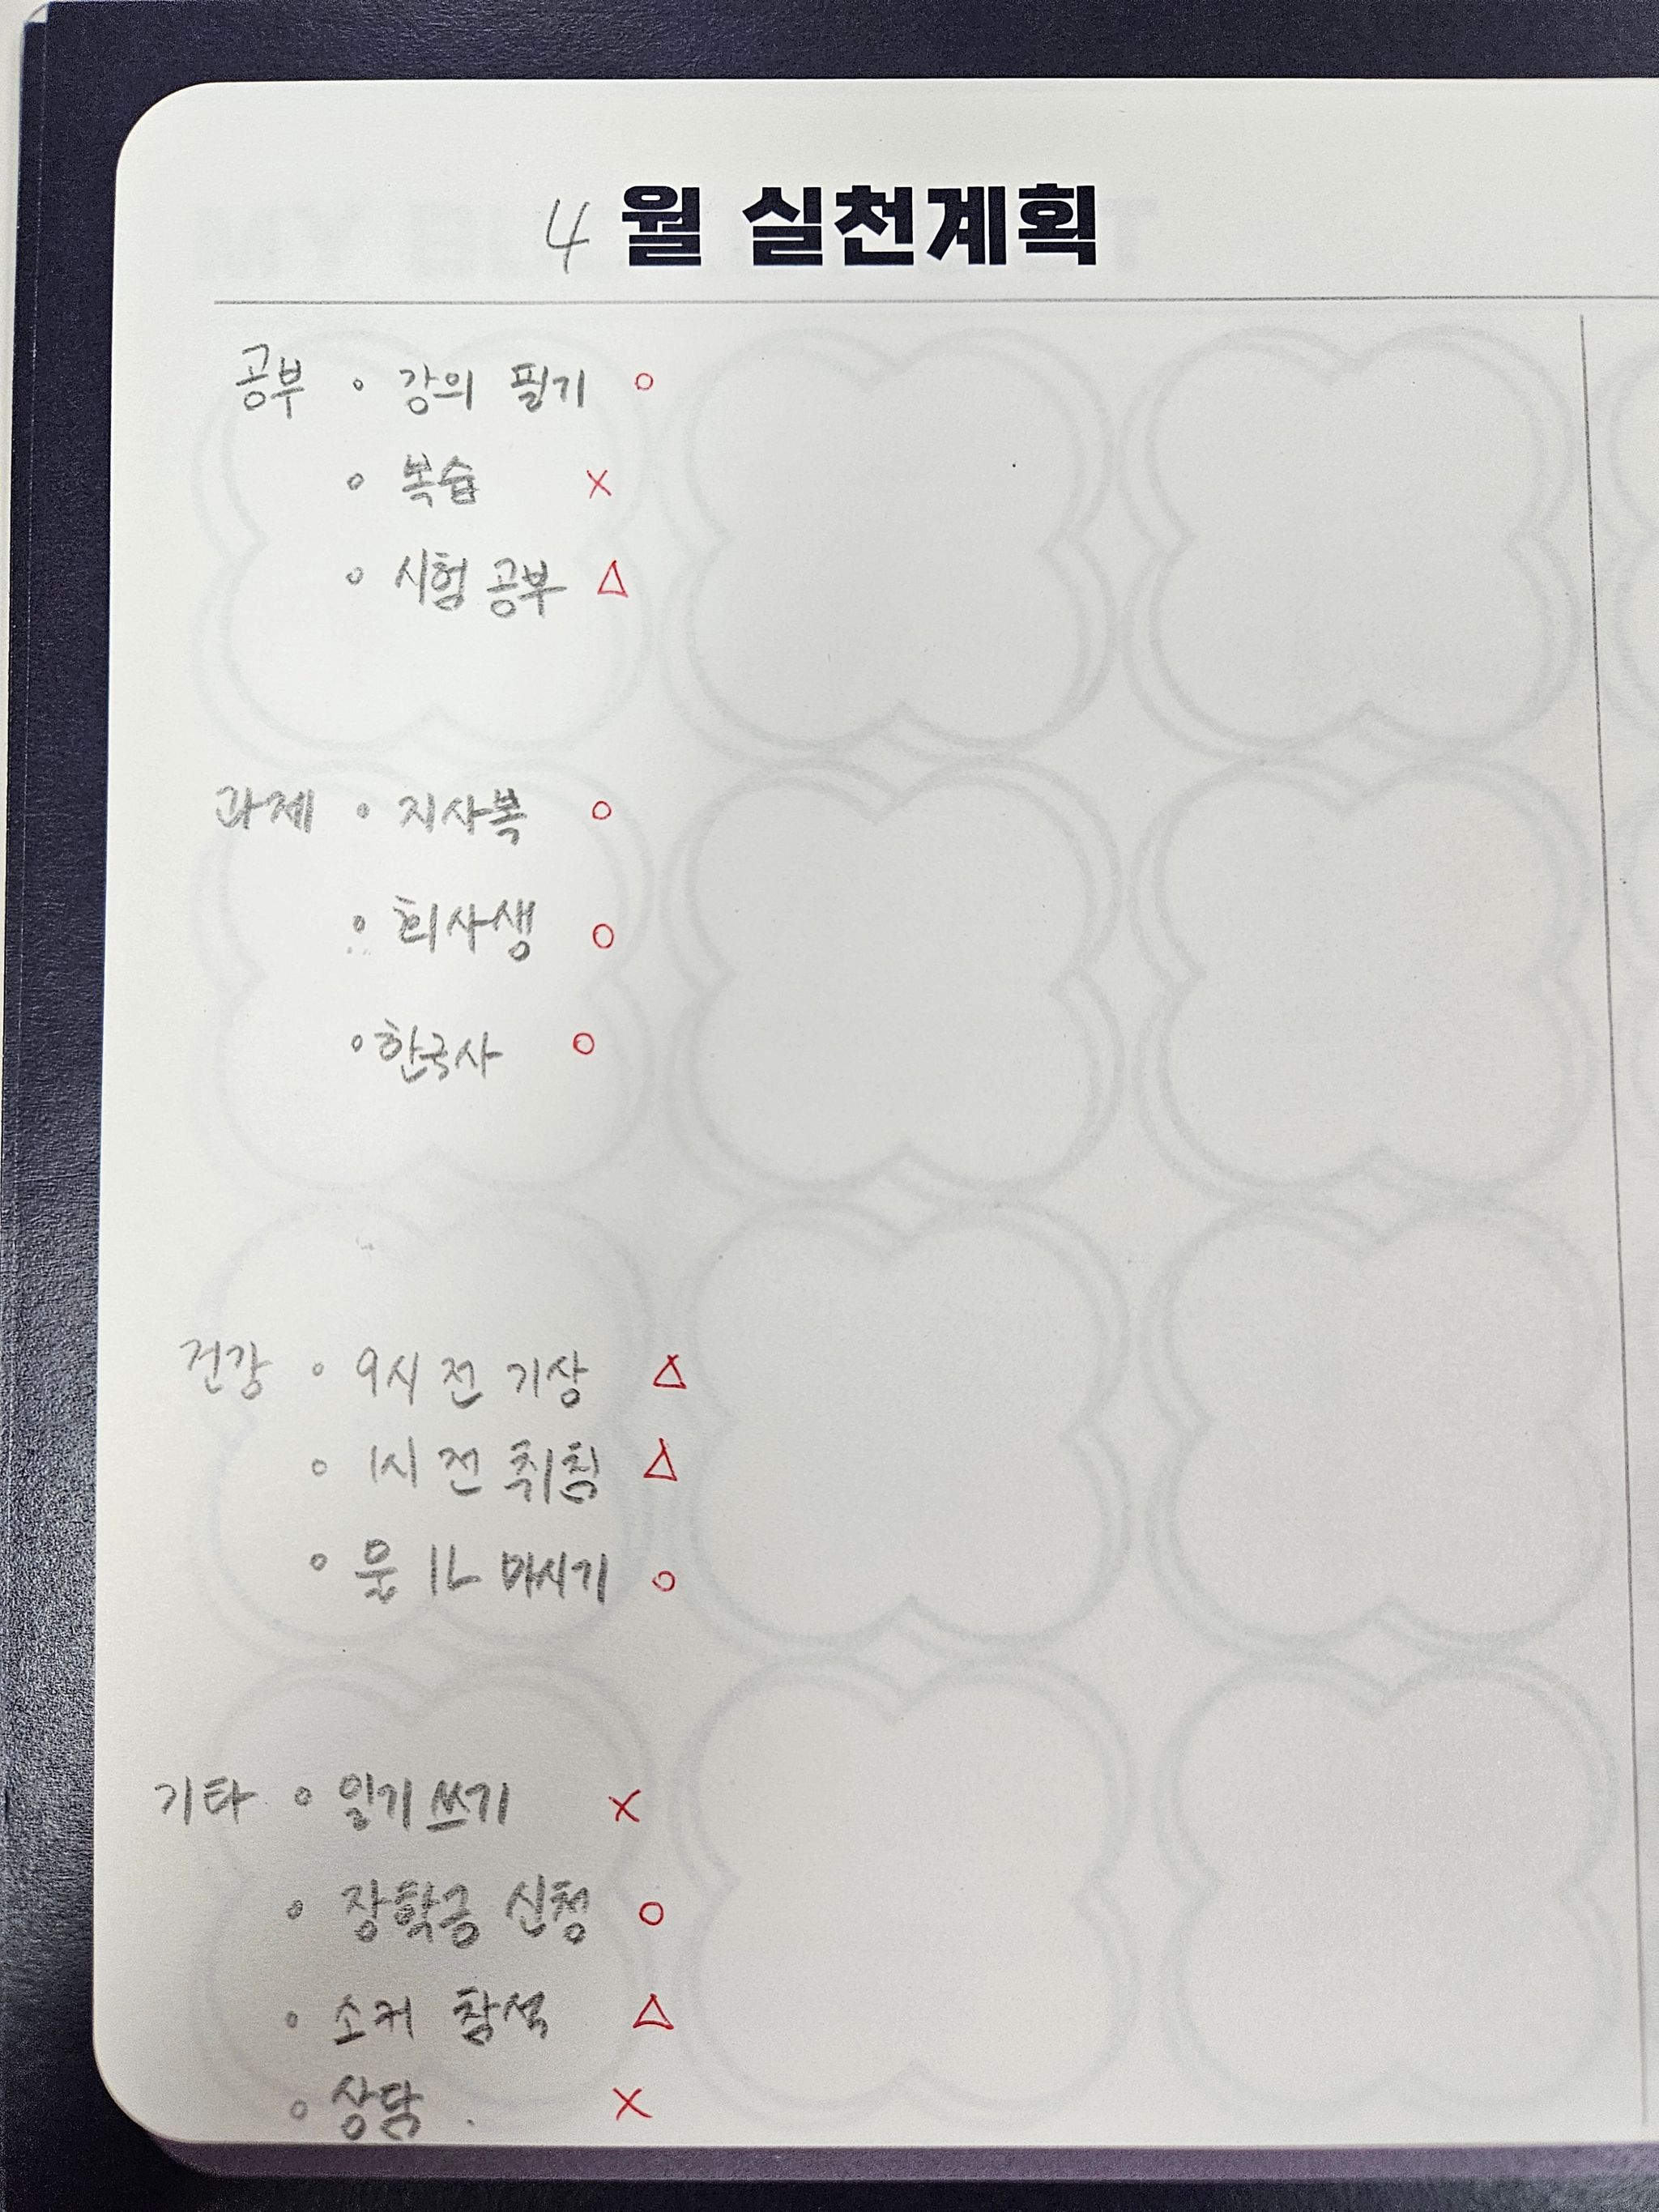 4월 실천계획
공부 ◦ 강의 필기 ○
◦ 복습 ×
◦ 시험 공부 △
과제 ◦ 지사복 ○
◦ 희사생 ○
◦ 한국사 ○
건강 ◦ 9시 전 기상 △
◦ 1시 전 취침 △
◦ 물 1L 마시기 ○
기타 ◦ 일기 쓰기 ×
◦ 장학금 신청 ○
◦ 소커 참석 △
◦ 상담 ×